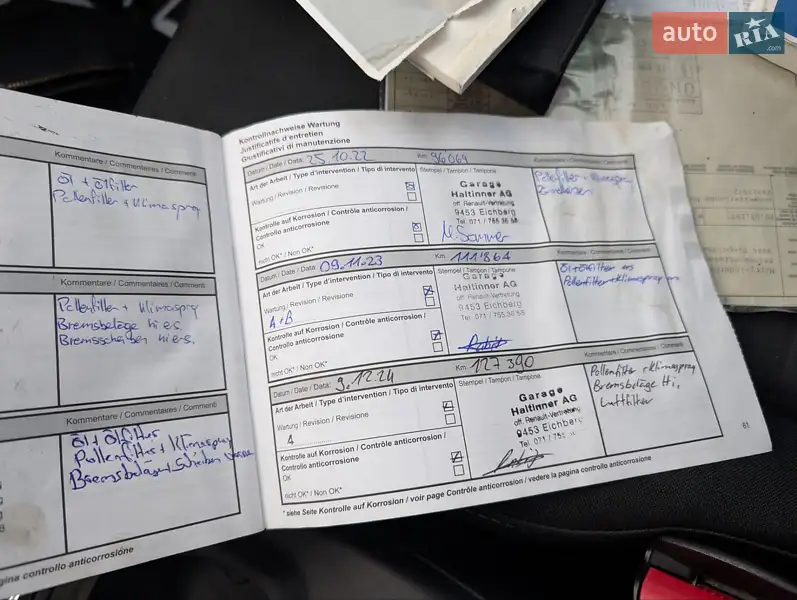 auto RIA.com
Kommentare / Commentaires / Commenti
Öl + Ölfilter
Pollenfilter + Klimaspray
Kommentare / Commentaires / Commenti
Pollenfilter + Klimaspray
Bremsbeläge hi es.
Bremsscheiben hi es.
Kommentare / Commentaires / Commenti
Öl + Ölfilter
Pollenfilter + Klimaspray
Bremsbeläge + Scheiben
pagina controllo anticorrosione
Kontrollnachweise Wartung
Justificatifs d'entretien
Giustificativi di manutenzione
Datum / Date / Data: 25.10.22 Km: 96069 Kommentare / Commentaires / Commenti
Art der Arbeit / Type d'intervention / Tipo di intervento Stempel / Tampon / Tampone
Wartung / Revision / Revisione
Kontrolle auf Korrosion / Contrôle anticorrosion /
Controllo anticorrosione
OK
nicht OK* / Non OK*
Garage
Haltinner AG
off. Renault-Vertretung
9453 Eichberg
Tel. 071 / 755 36 56
Pollenfilter + Klimaspray
Datum / Date / Data: 09.11.23 Km: 111'864 Kommentare / Commentaires / Commenti
Art der Arbeit / Type d'intervention / Tipo di intervento Stempel / Tampon / Tampone
Wartung / Revision / Revisione
A+B
Kontrolle auf Korrosion / Contrôle anticorrosion /
Controllo anticorrosione
OK
nicht OK* / Non OK*
Garage
Haltinner AG
off. Renault-Vertretung
9453 Eichberg
Tel. 071 / 755 36 56
Öl + Ölfilter en
Pollenfilter + Klimaspray en
Datum / Date / Data: 9.12.24 Km: 127 390 Kommentare / Commentaires / Commenti
Art der Arbeit / Type d'intervention / Tipo di intervento Stempel / Tampon / Tampone
Wartung / Revision / Revisione
A
Kontrolle auf Korrosion / Contrôle anticorrosion /
Controllo anticorrosione
OK
nicht OK* / Non OK*
Garage
Haltinner AG
off. Renault-Vertretung
9453 Eichberg
Tel. 071 / 755
Pollenfilter + Klimaspray
Bremsbeläge Hi,
Luftfilter
* siehe Seite Kontrolle auf Korrosion / voir page Contrôle anticorrosion / vedere la pagina controllo anticorrosione
61